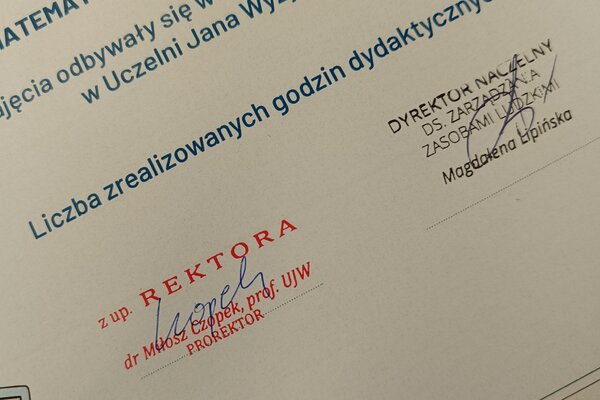 MATEMAT
ajęcia odbywały się w
w Uczelni Jana Wyż
Liczba zrealizowanych godzin dydaktycznych
DYREKTOR NACZELNY
DS. ZARZĄDZANIA
ZASOBAMI LUDZKIMI
Magdalena Lipińska
z up. REKTORA
dr Miłosz Czopek, prof. UJW
PROREKTOR